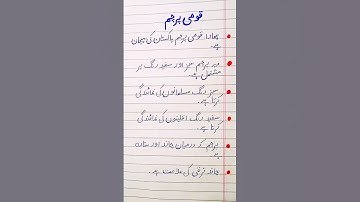 قومی پرچم
ہمارا قومی پرچم پاکستان کی پہچان
ہے۔
یہ پرچم سبز اور سفید رنگ پر
مشتمل ہے۔
سبز رنگ مسلمانوں کی نمائندگی
کرتا ہے۔
سفید رنگ اقلیتوں کی نمائندگی
کرتا ہے۔
پرچم کے درمیان چاند اور ستارہ
ہے۔
چاند ترقی کی علامت ہے۔